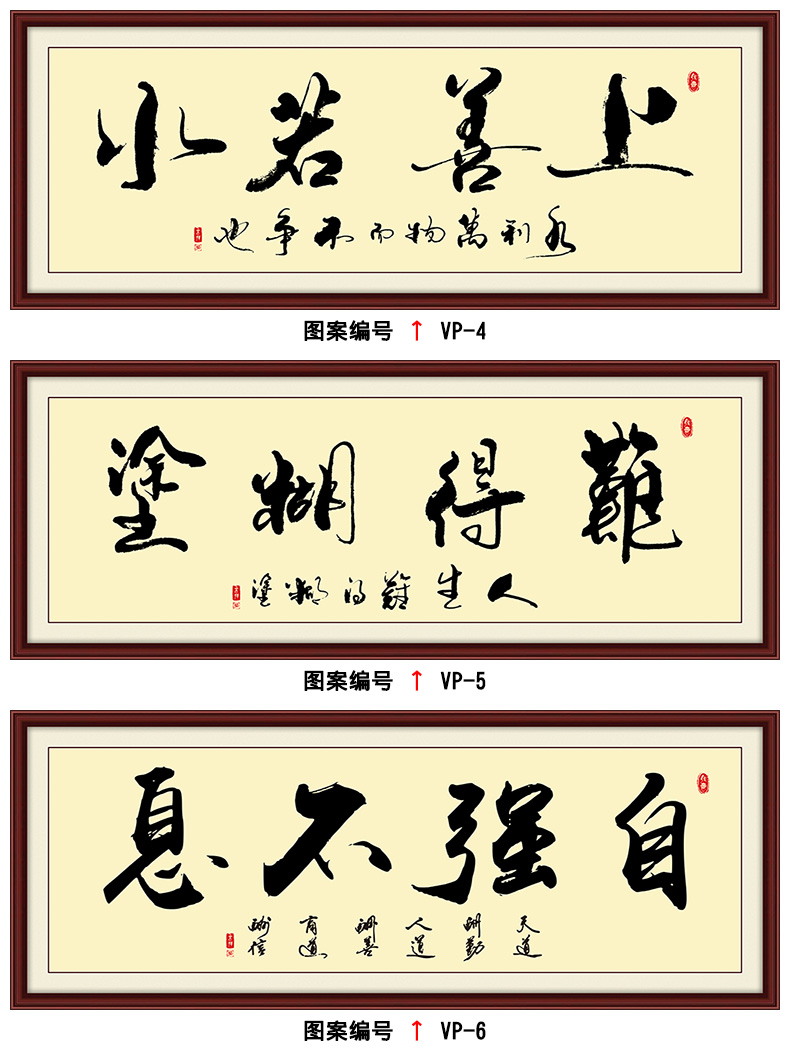 上善若水
水利萬物而不争也
图案编号 ↑ VP-4
難得糊塗
人生難得糊塗
图案编号 ↑ VP-5
自强不息
天道
酬勤
人道
酬善
商道
酬信
图案编号 ↑ VP-6